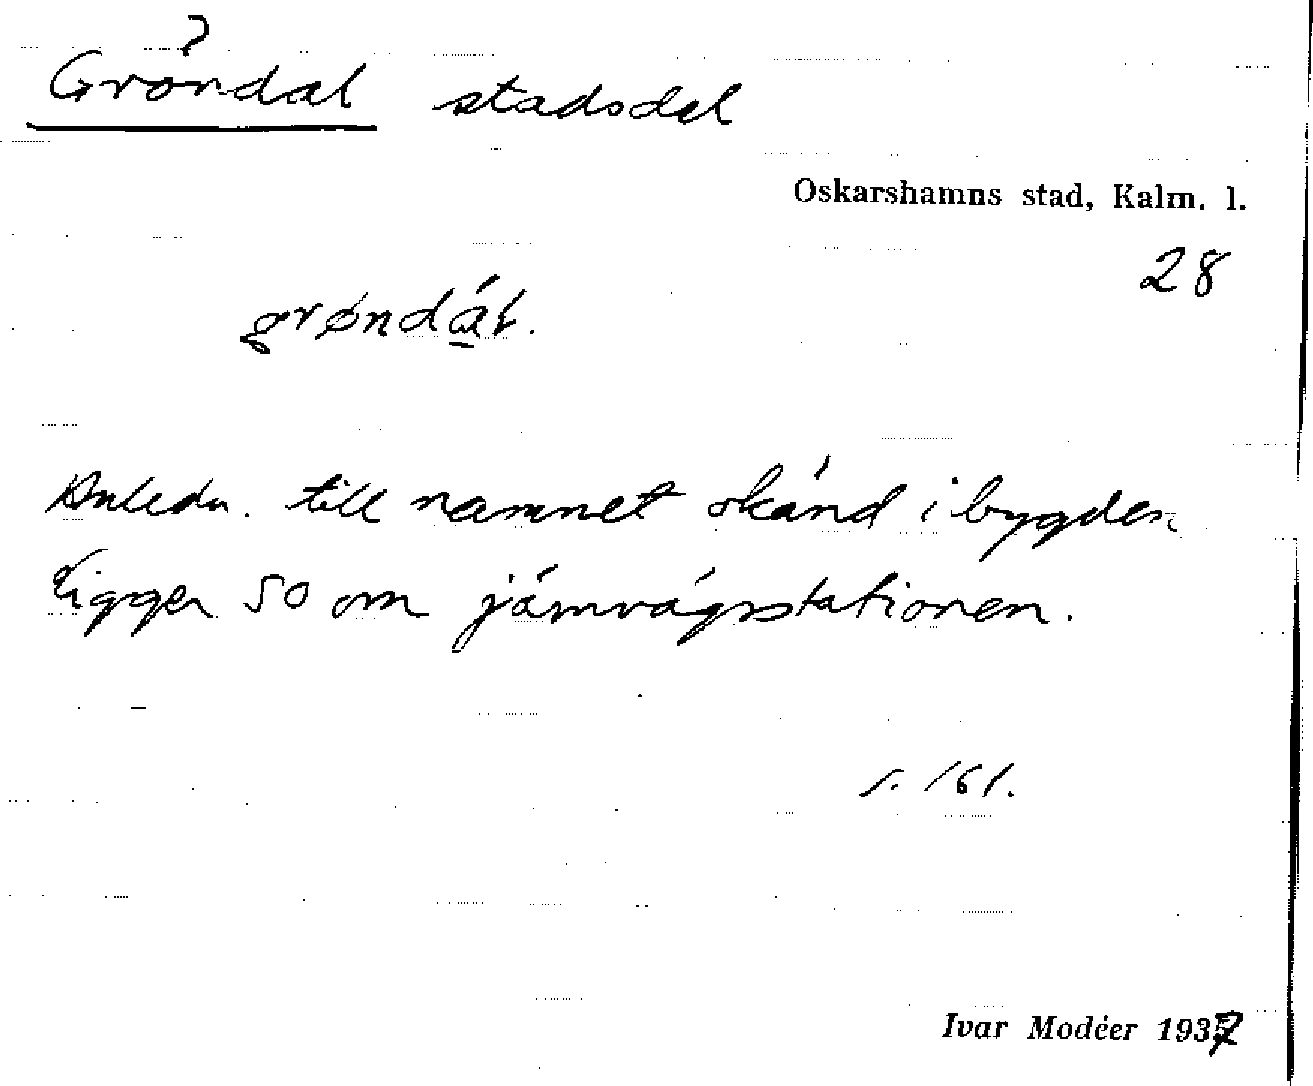 ?
Gröndal stadsdel
Oskarshamns stad, Kalm. l.
28
grøndál.
Anledn. till namnet okänd i bygden.
Ligger SO om järnvägsstationen.
s. 161.
Ivar Modéer 1937